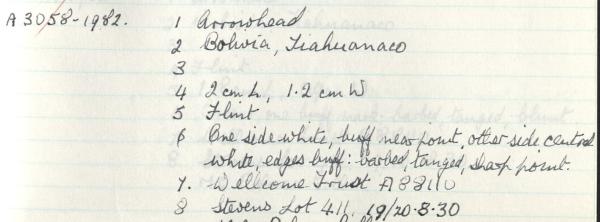 A 3058-1982. 1 Arrowhead
2 Bolivia, Tiahuanaco
3
4 2 cm L, 1.2 cm W
5 Flint
6 One side white, buff near point, other side central
white, edges buff: barbed, tanged, sharp point.
7. Wellcome Trust A 88110
8 Stevens Lot 411, 19/20.8.30